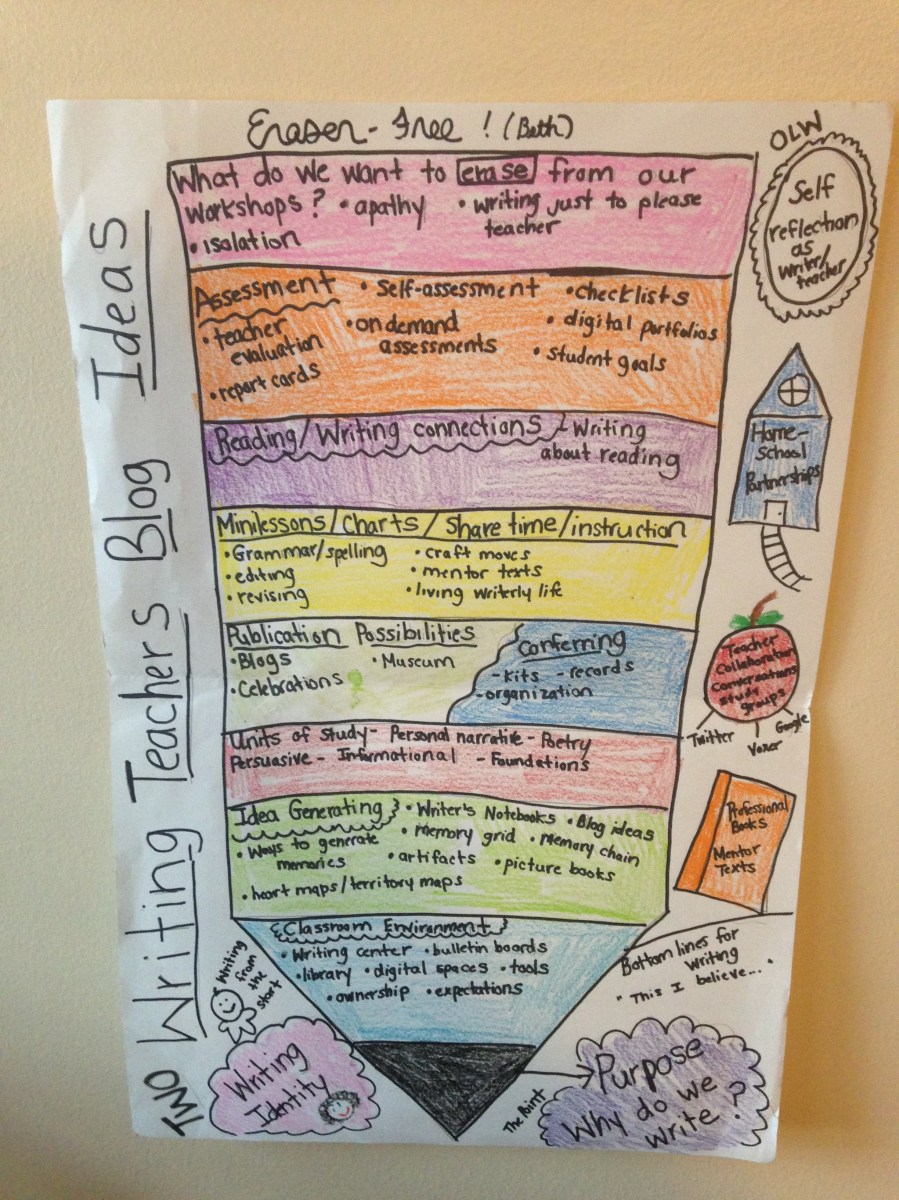 Eraser-Free! (Beth)
TWO Writing Teachers Blog Ideas
What do we want to erase from our
workshops? • apathy • writing just to please
teacher
• isolation
Assessment • Self-assessment • checklists
• teacher
evaluation
• on demand
assessments
• digital portfolios
• student goals
• report cards
Reading/Writing connections - Writing
about reading
Minilessons/Charts/Share time/instruction
• Grammar/spelling • craft moves
• editing • mentor texts
• revising • living writerly life
Publication Possibilities
• Blogs • Museum
• Celebrations
Conferring
- Kits - records
- organization
Units of Study - Personal narrative - Poetry
Persuasive - Informational - Foundations
Idea Generating • Writer's Notebooks • Blog ideas
• Memory grid • Memory chain
• Ways to generate
memories
• artifacts • picture books
• heart maps/territory maps
Classroom Environment
• Writing center • bulletin boards
• library • digital spaces • tools
• ownership • expectations
OLW
Self
reflection
as
writer/
teacher
Home-
School
Partnerships
Teacher
Collaboration
Conversations
Study
groups
Twitter
Voxer
Google
Professional
Books
Mentor
Texts
Bottom lines for
writing
"This I believe..."
Writing
from
the
start
Writing
Identity
The Point
Purpose
Why do we
write?